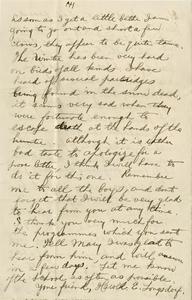 (4)
As soon as I get a little better I am
going to go out and shoot a few
Crows, they appear to be quite tame.
The Winter has been very hard
on birds of all kinds I have
heard of several partridges
being found in the snow dead,
it seems very sad when they
were fortunate enough to
escape death at the hands of the
hunter. Although it is rather
bad taste to apologize for a
poor letter, I think I will have to
do it for this one. Remember
me to all the boys, and don't
forget that I will be very glad
to hear from you at any time.
I thank you very much for
the programmes which you sent
me. Tell Mary I was glad to
hear from him, and will answer
in a few days. Let me know
of the school as often as possible.
Your friend, E. Longsdorf.